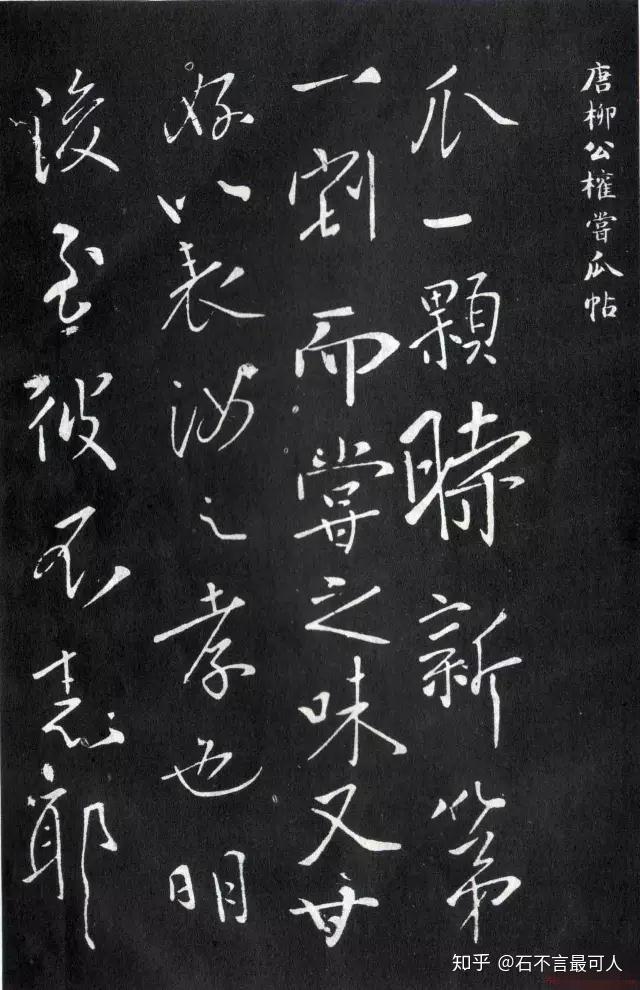 唐柳公權嘗瓜帖
瓜一顆時新第
一割而嘗之味又甘
好以表汝之孝也明
後至彼不志耶
知乎 @石不言最可人